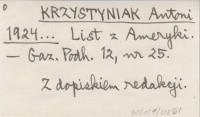 KRZYSTYNIAK Antoni
1924... List z Ameryki.
— Gaz. Podh. 12, nr 25.
Z dopiskiem redakcji.